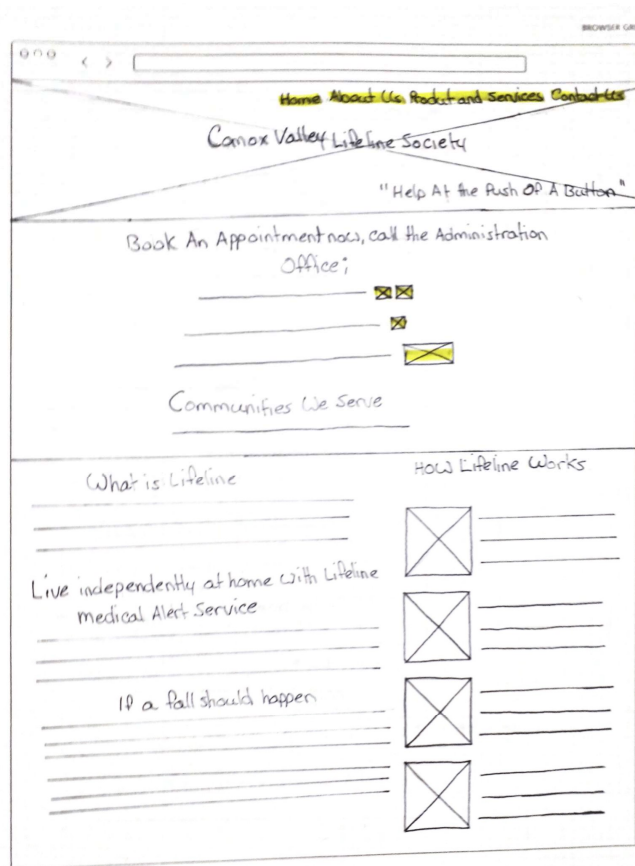 BROWSER GRI
Home About Us Product and Services Contact Us
Comox Valley Lifeline Society
"Help At the Push Of A Button"
Book An Appointment now, call the Administration
Office;
Communities We Serve
What is Lifeline
How Lifeline Works
Live independently at home with Lifeline
medical Alert Service
If a fall should happen